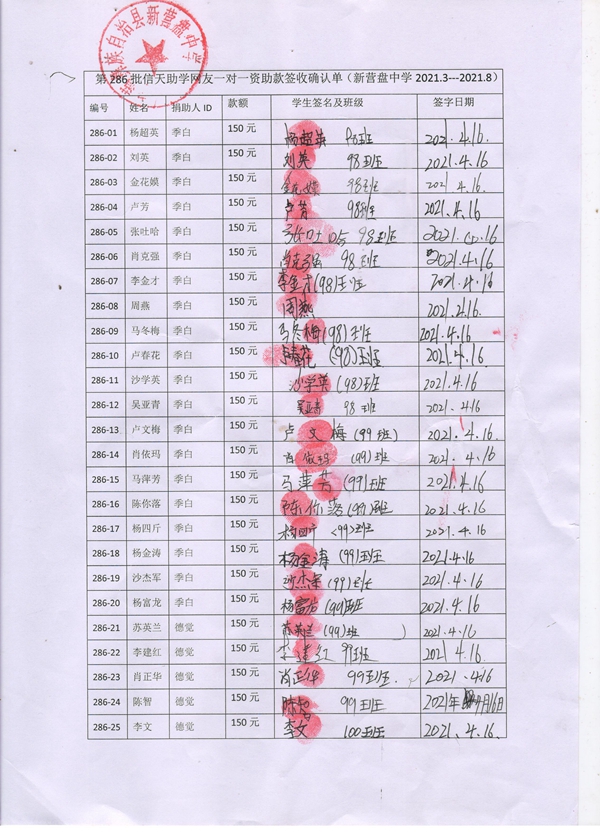 族自治县新营盘中学
第286批信天助学网友一对一资助款签收确认单（新营盘中学2021.3---2021.8）
编号 姓名 捐助人ID 款额 学生签名及班级 签字日期
286-01 杨超英 季白 150元 杨超英 98班 2021.4.16
286-02 刘英 季白 150元 刘英 98班 2021.4.16
286-03 金花嫫 季白 150元 金花嫫 98班 2021.4.16
286-04 卢芳 季白 150元 卢芳 98班 2021.4.16
286-05 张吐哈 季白 150元 张吐哈 98班 2021.4.16
286-06 肖克强 季白 150元 肖克强 98班 2021.4.16
286-07 李金才 季白 150元 李金才(98)班 2021.4.16
286-08 周燕 季白 150元 周燕 2021.2.16
286-09 马冬梅 季白 150元 马冬梅(98)班 2021.4.16
286-10 卢春花 季白 150元 卢春花 (98)班 2021.4.16
286-11 沙学英 季白 150元 沙学英(98)班 2021.4.16
286-12 吴亚青 季白 150元 吴亚青 98班 2021.4.16
286-13 卢文梅 季白 150元 卢文梅(99班) 2021.4.16
286-14 肖依玛 季白 150元 肖依玛 (99)班 2021.4.16
286-15 马萍芳 季白 150元 马萍芳 (99)班 2021.4.16
286-16 陈你落 季白 150元 陈你落(99)班 2021.4.16
286-17 杨四斤 季白 150元 杨四斤 (99)班 2021.4.16
286-18 杨金涛 季白 150元 杨金涛(99)班 2021.4.16
286-19 沙杰军 季白 150元 沙杰军(99)班 2021.4.16
286-20 杨富龙 季白 150元 杨富龙(99)班 2021.4.16
286-21 苏英兰 德觉 150元 苏英兰(99)班 ) 2021.4.16
286-22 李建红 德觉 150元 李建红 99班 2021 4.16
286-23 肖正华 德觉 150元 肖正华 99班 2021.4.16
286-24 陈智 德觉 150元 陈智 99班 2021年4月16日
286-25 李文 德觉 150元 李文 100班 2021.4.16